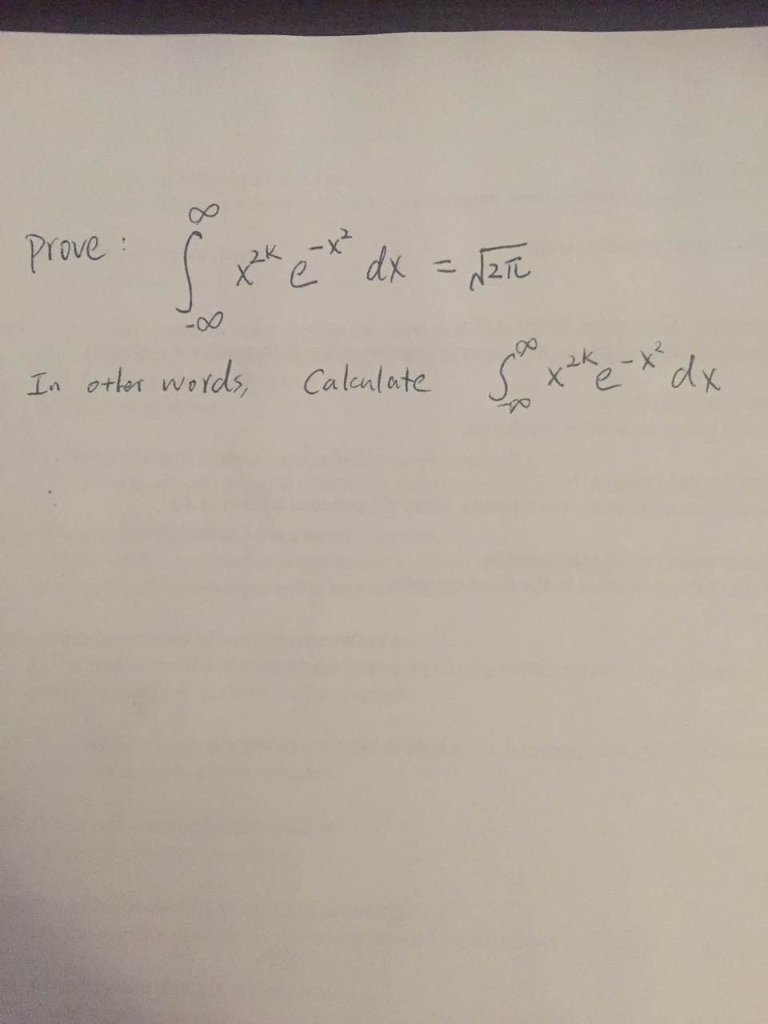 Prove: ∫_{-∞}^{∞} x^{2k} e^{-x^2} dx = √2π
In other words, Calculate ∫_{-∞}^{∞} x^{2k} e^{-x^2} dx